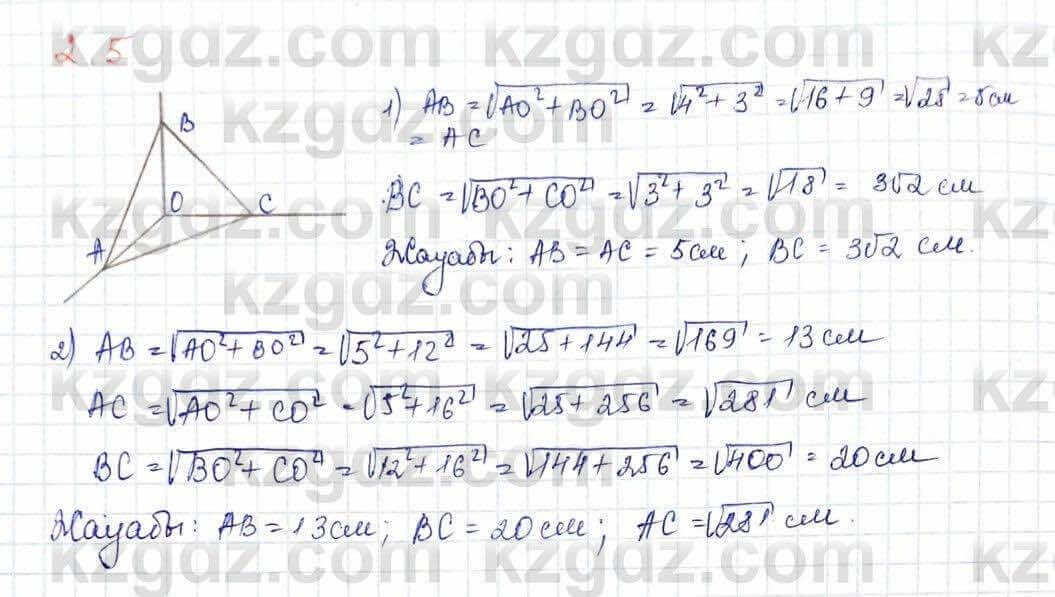 2.5
B
O
C
A
1) AB = √AO²+BO² = √4²+3² = √16+9 = √25 = 5см
= AC
BC = √BO²+CO² = √3²+3² = √18 = 3√2 см
Жауабы: AB = AC = 5см; BC = 3√2 см.
2) AB = √AO²+BO² = √5²+12² = √25+144 = √169 = 13 см
AC = √AO²+CO² = √5²+16² = √25+256 = √281 см
BC = √BO²+CO² = √12²+16² = √144+256 = √400 = 20 см
Жауабы: AB = 13 см; BC = 20 см; AC = √281 см.
kzgdz.com